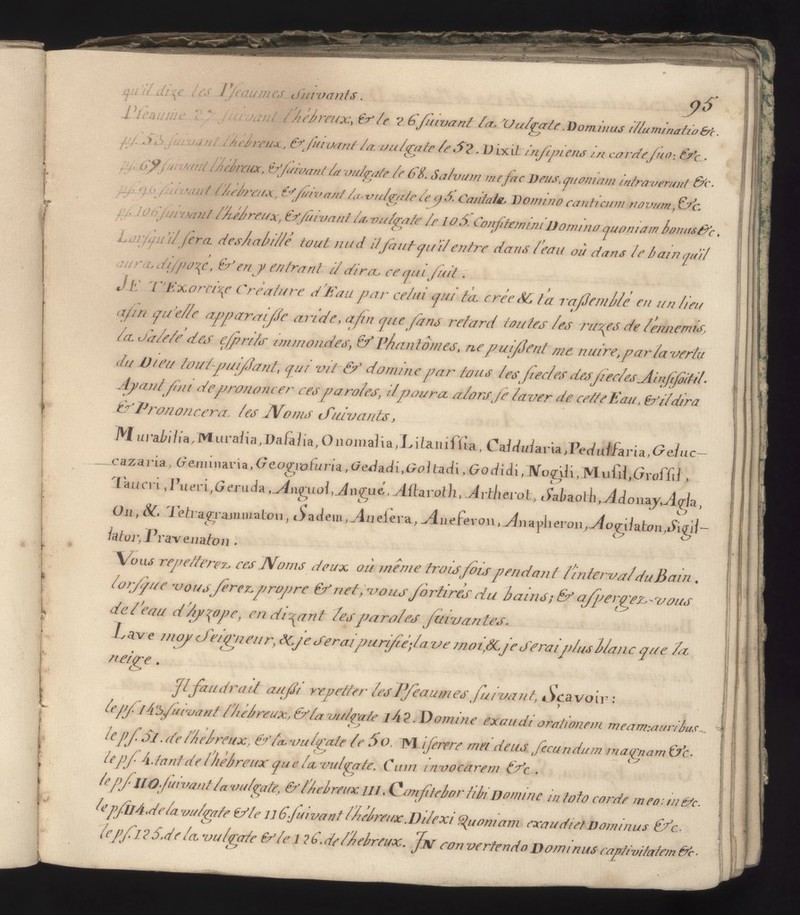 95
qu'il dize les Pseaumes Suivants.
Pseaume 27 suivant l'hébreux, & le 26 suivant la Vulgate. Dominus illuminatio &c.
ps. 53 suivant l'hébreux, & suivant la vulgate le 52. Dixit insipiens in corde suo: &c.
ps. 69 suivant l'hébreux, & suivant la vulgate le 68. Salvum me fac Deus, quoniam intraverunt &c.
ps. 96 suivant l'hébreux, & suivant la vulgate le 95. Cantate Domino canticum novum, &c.
ps. 106 suivant l'hébreux, & suivant la vulgate le 105. Confitemini Domino quoniam bonus &c.
Lorsqu'il sera deshabillé tout nud il faut qu'il entre dans l'eau où dans le bain qu'il
aura dispozé, & en y entrant il dira ce qui suit.
JE T'Exorcize Créature d'Eau par celui qui t'a crée & t'a raßemblé en un lieu
afin qu'elle apparaiße aride, afin que sans retard toutes les ruzes de l'ennemis,
la Saleté des esprits immondes, & Phantômes, ne puißent me nuire, par la vertu
du Dieu tout-puißant, qui vit & domine par tous les siecles des siecles Ainsisoitil.
Ayant fini de prononcer ces paroles, il poura alors se laver de cette Eau, & il dira
& Prononcera les Noms Suivants,
Murabilia, Muralia, Dasalia, Onomalia, Litanissia, Caldularia, Pedulfaria, Geluc-
cazaria, Geminaria, Geognofuria, Gedadi, Goltadi, Godidi, Nogili, Musil, Grossil,
Taucri, Pueri, Geruda, Anguol, Angué, Astaroth, Artherot, Sabaoth, Adonay, Agla,
On, &, Tetragrammaton, Sadem, Anesera, Aneferon, Anapheron, Aogilaton, Sigil-
lator, Pravenaton.
Vous repetterez ces Noms deux où même trois fois pendant l'interval du Bain.
lorsque vous serez propre & net, vous sortirés du bains; & aspergez-vous
de l'eau d'hyzope, en dizant les paroles suivantes.
Lave moy Seigneur, & je Serai purifié; lave moi, & je Serai plus blanc que la
neige.
Il faudrait außi repetter les Pseaumes suivant, Sçavoir:
le ps. 143, suivant l'hébreux, & la vulgate 142. Domine exaudi orationem meam: auribus-
le ps. 51. de l'hébreux, & la vulgate le 50. Miserere mei deus, secundum magnam &c.
le ps. 4. tant de l'hébreux que la vulgate. Cum invocarem &c.
le ps. 110. suivant la vulgate, & l'hébreux 111. Confitebor tibi Domine in toto corde meo: in &c.
le ps. 114. de la vulgate & le 116. suivant l'hébreux. Dilexi Quoniam exaudiet Dominus &c.
le ps. 125. de la vulgate & le 126. de l'hebreux. IN convertendo Dominus captivitatem &c.